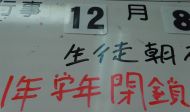 行事 12 月 8
生徒朝
1年学年閉鎖